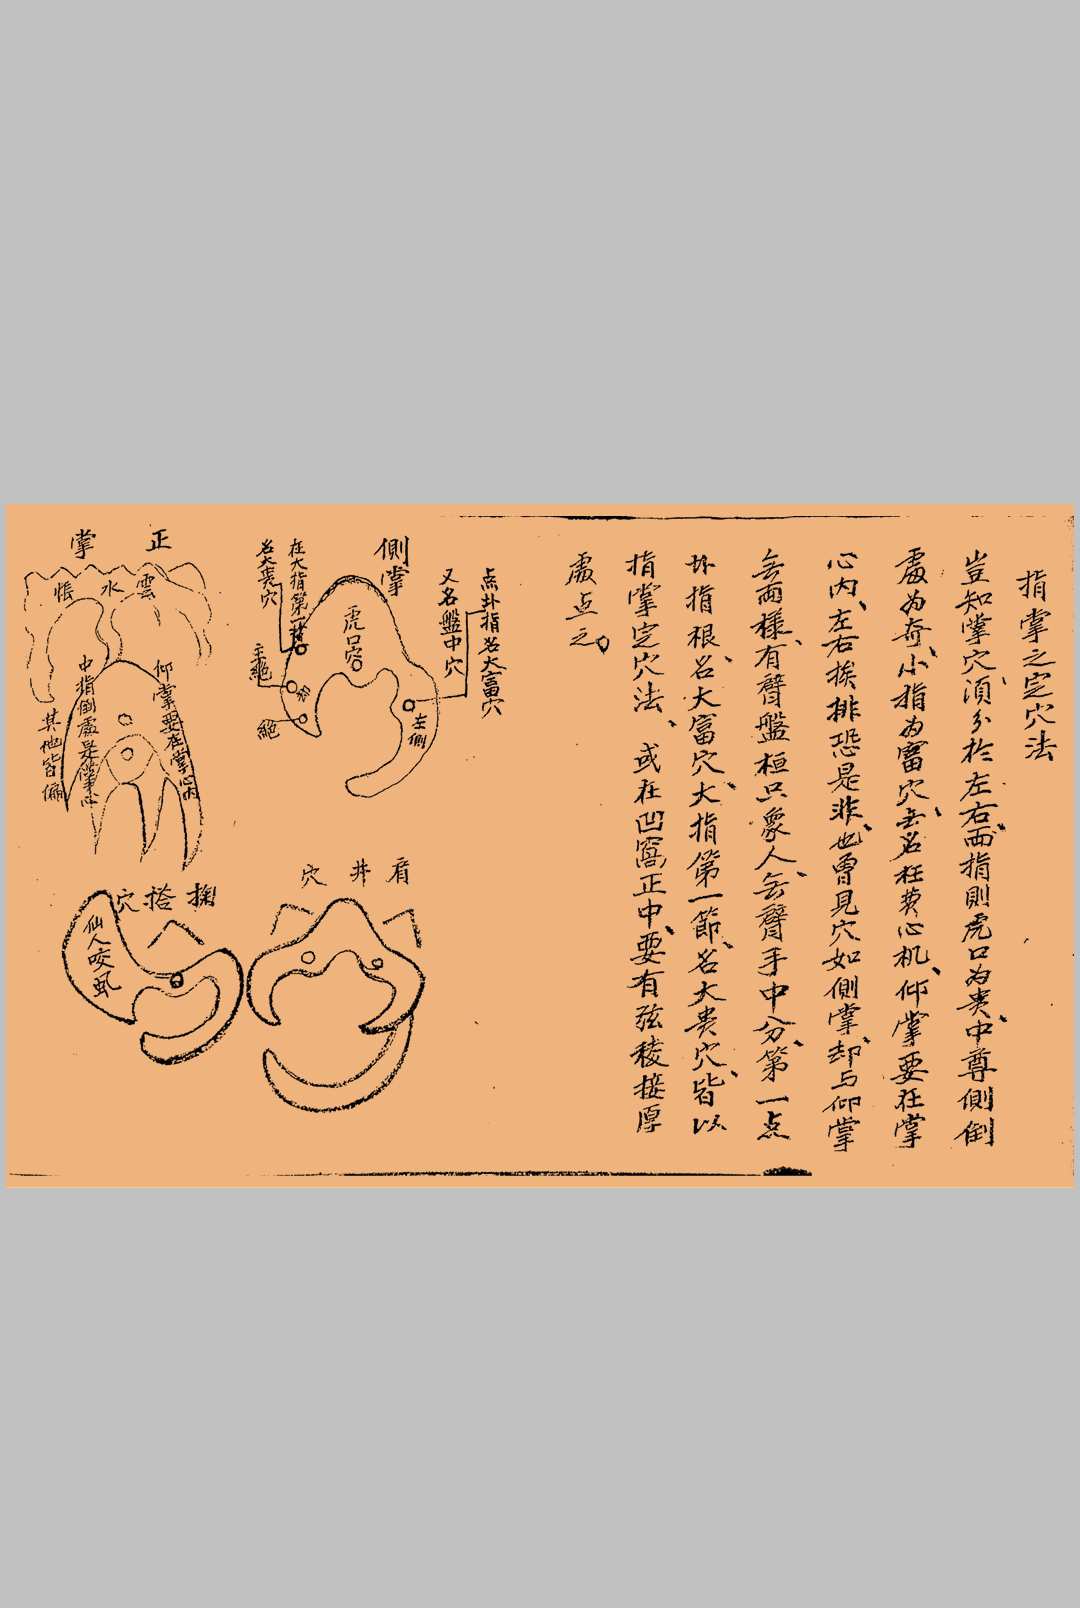 指掌之定穴法
豈知掌穴、須分於左右、両指則虎口為贵、中尊側倒
處為奇、小指為富穴、無名枉費心机、仰掌要在掌
心内、左右挨排恐是非、也曾見穴如側掌、却与仰掌
無両樣、有臂盤桓只象人、無臂手中分、第一点
卦指根、名大富穴、大指第一節、名大贵穴、皆以
指掌定穴法、或在凹窩正中、要有弦稜接厚
處点之
点卦指名大富穴
又名盤中穴
側掌
虎口穴
左側
在大指第一節
名大贵穴
主絕
絕
正掌
雲水帳
仰掌要在掌心内
中指倒處是掌心
其他皆偏
肩井穴
掬搭穴
仙人咬虱